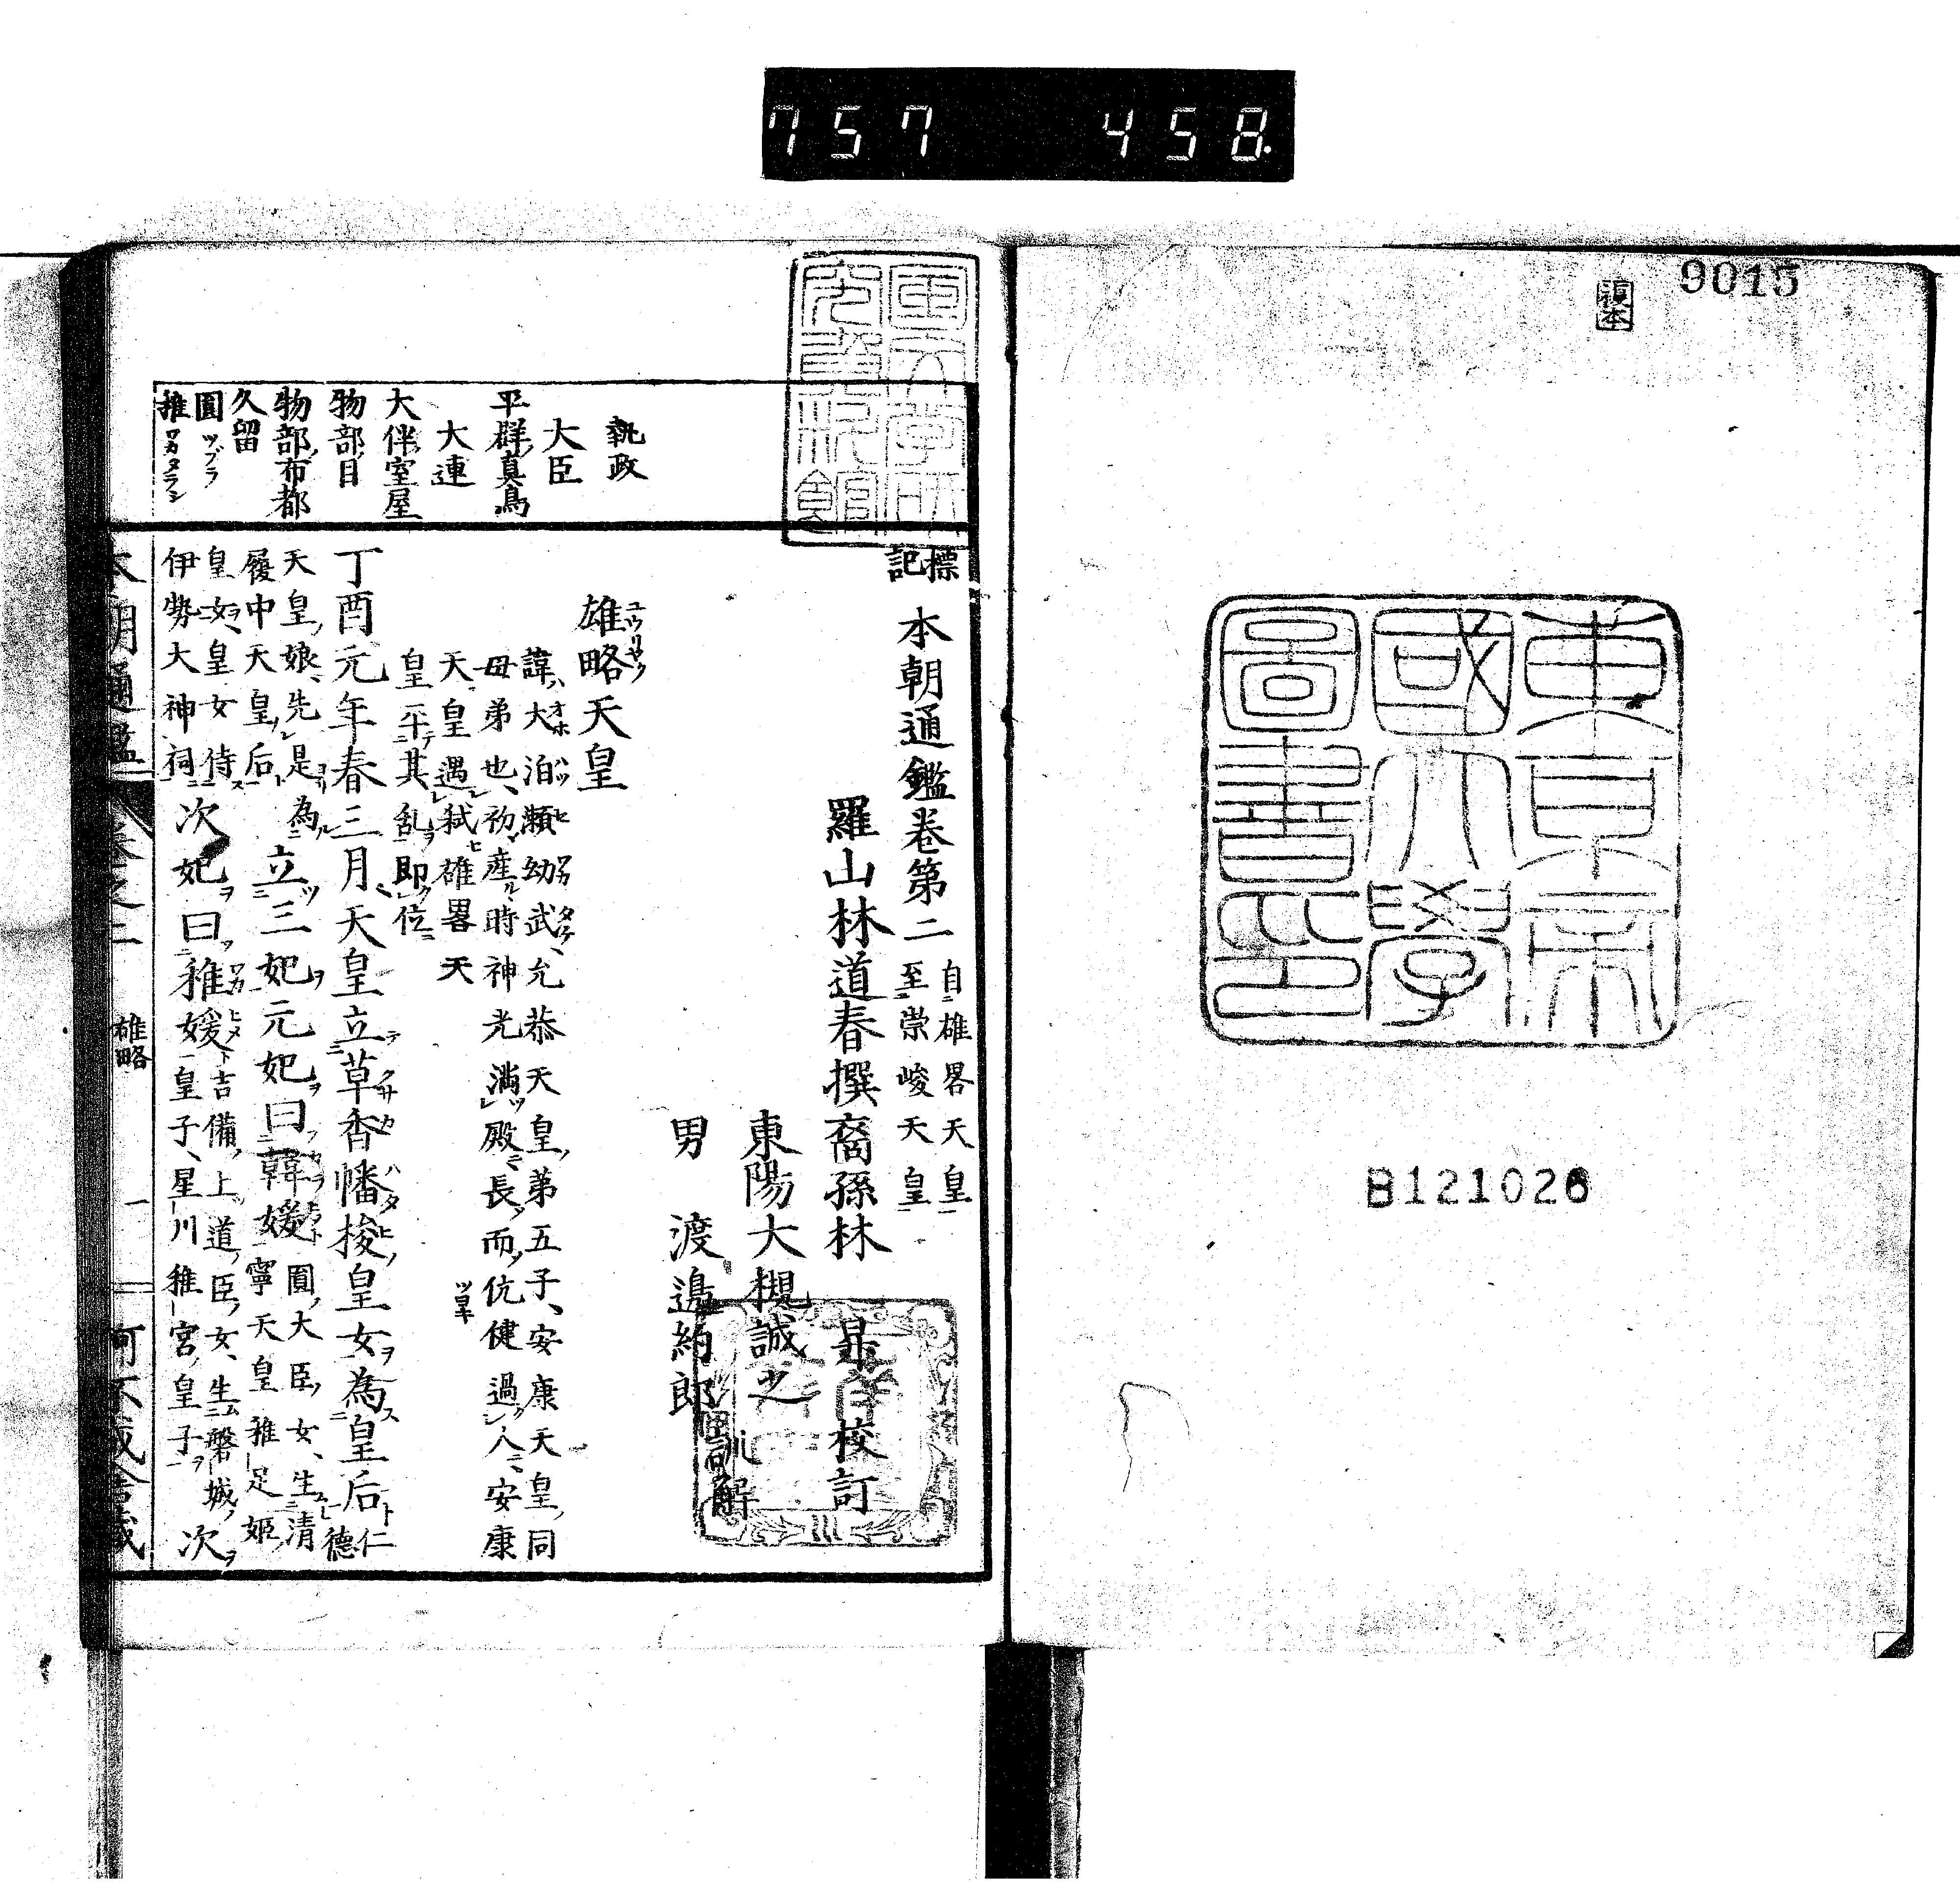 757 458.
9015
複本
東京帝
國大學
圖書印
B121026
標記
本朝通鑑卷第二 自雄畧天皇至崇峻天皇
羅山林道春撰裔孫林 昇校訂
東陽大槻誠之
男 渡邉約郎
訓解
雄略天皇
ユウリヤク
諱大泊瀬幼武、允恭天皇第五子、安康天皇同
母弟也、初産時神光満殿長而伉健過人安康
天皇遇弑雄畧天
皇平其乱即位
丁酉元年春三月、天皇立草香幡梭皇女為皇后 仁德
天皇娘、先是為
履中天皇后
立三妃元妃曰韓媛 圓大臣女、生清
寧天皇稚足姫
皇女、皇女侍
伊勢大神祠
次妃曰稚媛 吉備上道臣女、生磐城
皇子、星川稚宮皇子
次
執政
大臣
平群真鳥
大連
大伴室屋
物部目
物部布都
久留
圓 ツブラ
稚 ワカタラシ
本朝通鑑 卷之二 雄略 一